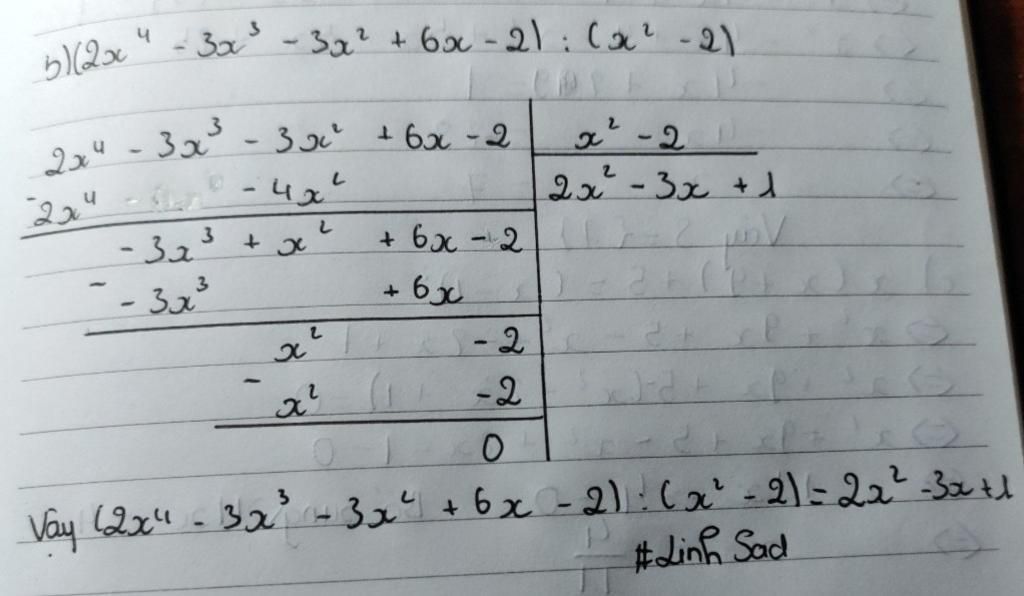 b) (2x⁴ - 3x³ - 3x² + 6x - 2) : (x² - 2)
2x⁴ - 3x³ - 3x² + 6x - 2 | x² - 2
- 2x⁴ - 4x² | 2x² - 3x + 1
- 3x³ + x² + 6x - 2
- - 3x³ + 6x
x² - 2
- x² - 2
0
Vậy (2x⁴ - 3x³ - 3x² + 6x - 2) : (x² - 2) = 2x² - 3x + 1
#Linh Sad